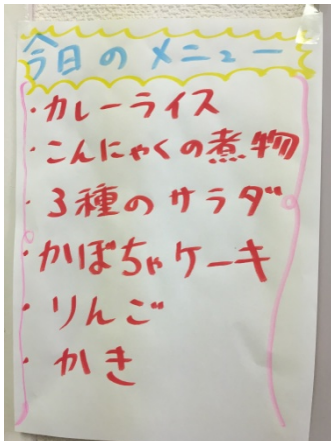 今日のメニュー
・カレーライス
・こんにゃくの煮物
・3種のサラダ
・かぼちゃケーキ
・りんご
・かき